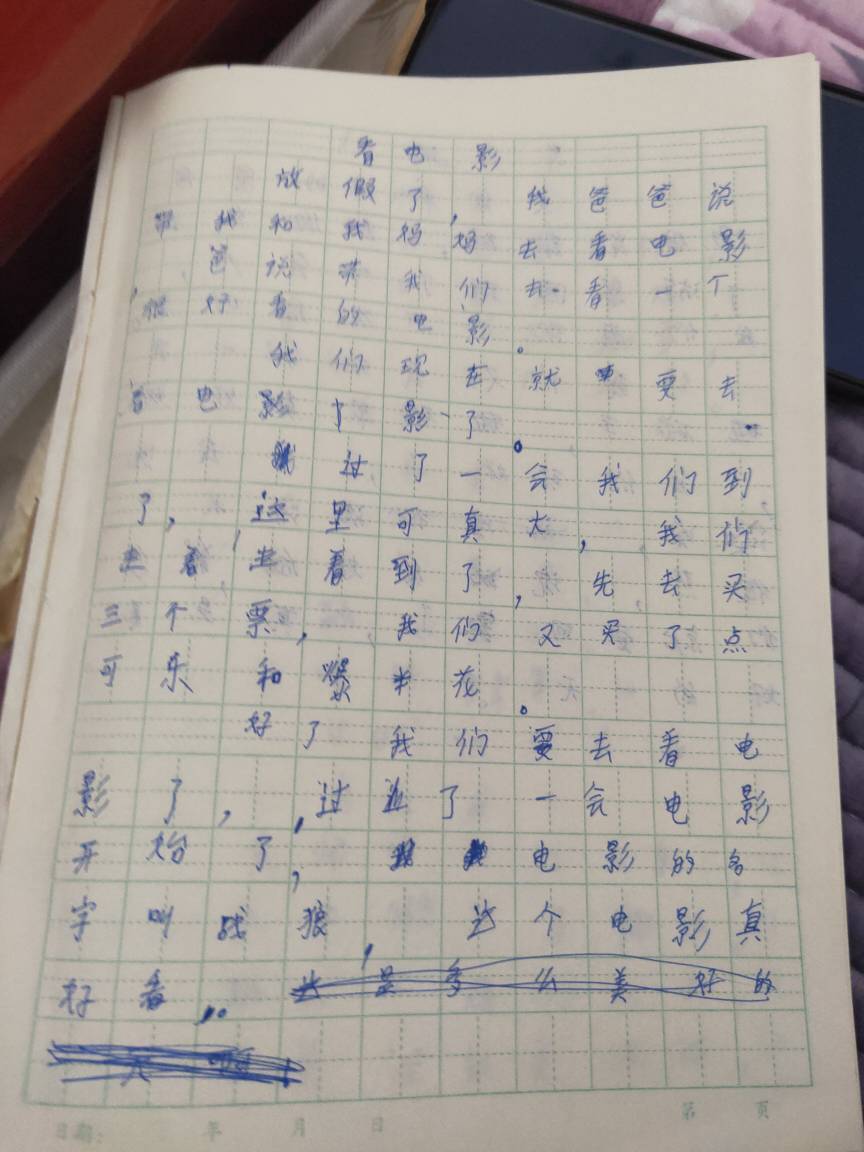 看电影
放假了，我爸爸说
带我和我妈妈去看电影
，爸说带我们去看一个
很好看的电影。
我们现在就要去
看电影了。
过了一会我们到
了，这里可真大，我们
看到了，先去买
三个票，我们又买了点
可乐和爆米花。
好了我们要去看电
影了，过了一会电影
开始了，电影的名
字叫战狼，这个电影真
好看。
是多么美好的
日期： 年 月 日 第 页